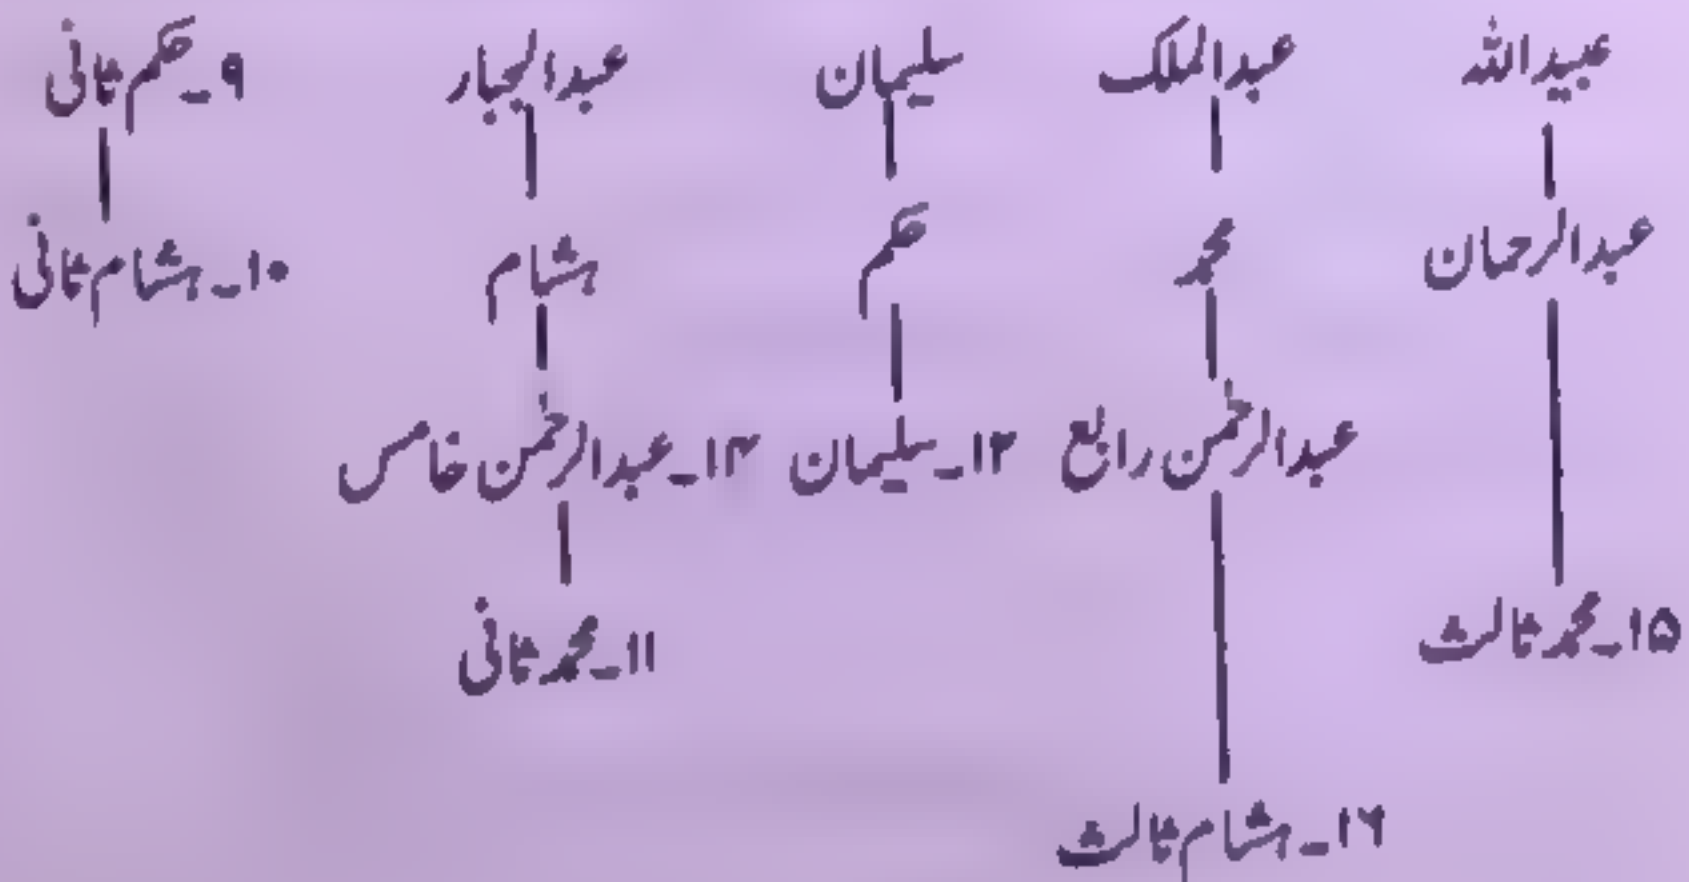 عبیداللہ عبدالملک سلیمان عبدالجبار ۹۔حکم ثانی
عبدالرحمان محمد حکم ہشام ۱۰۔ہشام ثانی
عبدالرحمٰن رابع ۱۲۔سلیمان ۱۴۔عبدالرحمٰن خامس
۱۵۔محمد ثالث ۱۱۔محمد ثانی
۱۶۔ہشام ثالث